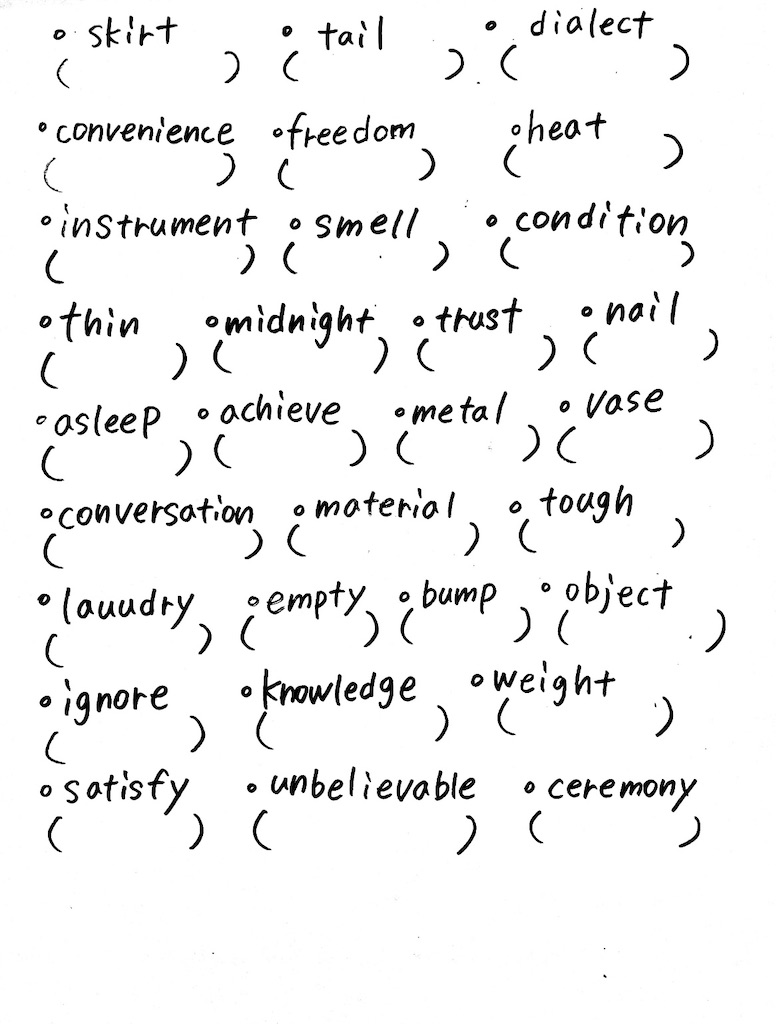 • skirt • tail • dialect
( ) ( ) ( )
• convenience • freedom • heat
( ) ( ) ( )
• instrument • smell • condition
( ) ( ) ( )
• thin • midnight • trust • nail
( ) ( ) ( ) ( )
• asleep • achieve • metal • vase
( ) ( ) ( ) ( )
• conversation • material • tough
( ) ( ) ( )
• lauudry • empty • bump • object
( ) ( ) ( ) ( )
• ignore • knowledge • weight
( ) ( ) ( )
• satisfy • unbelievable • ceremony
( ) ( ) ( )